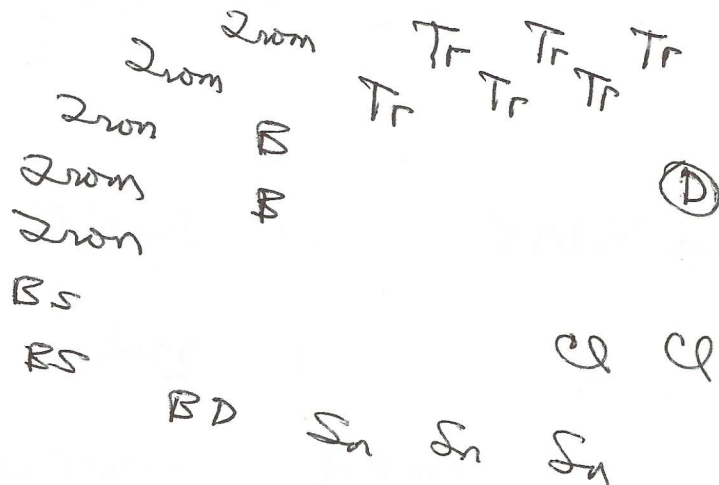 Trom Tr Tr Tr
Trom Tr Tr Tr
Tron B
Trom B D
Tron
BS
BS Cl Cl
BD Sn Sn Sn